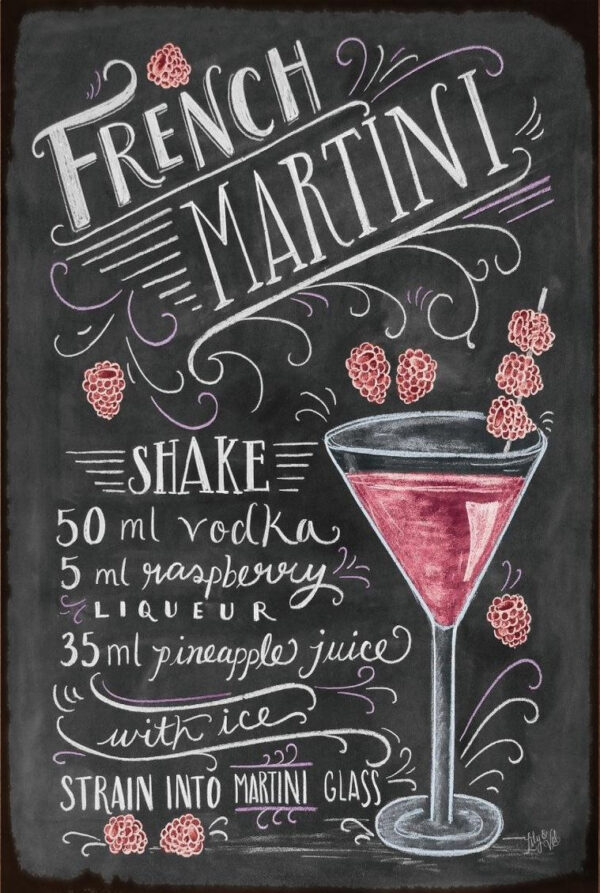 FRENCH
MARTINI
SHAKE
50 ml vodka
5 ml raspberry
LIQUEUR
35 ml pineapple juice
with ice
STRAIN INTO MARTINI GLASS
Lily & Val